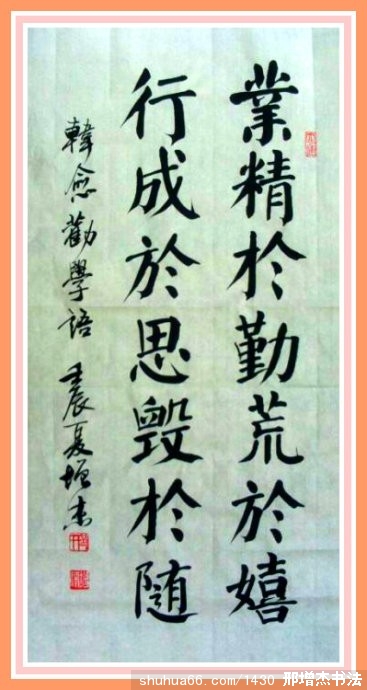 業精於勤荒於嬉
行成於思毀於隨
韓愈勸學語 壬辰夏增杰
shuhua66.com/1430 邢增杰书法